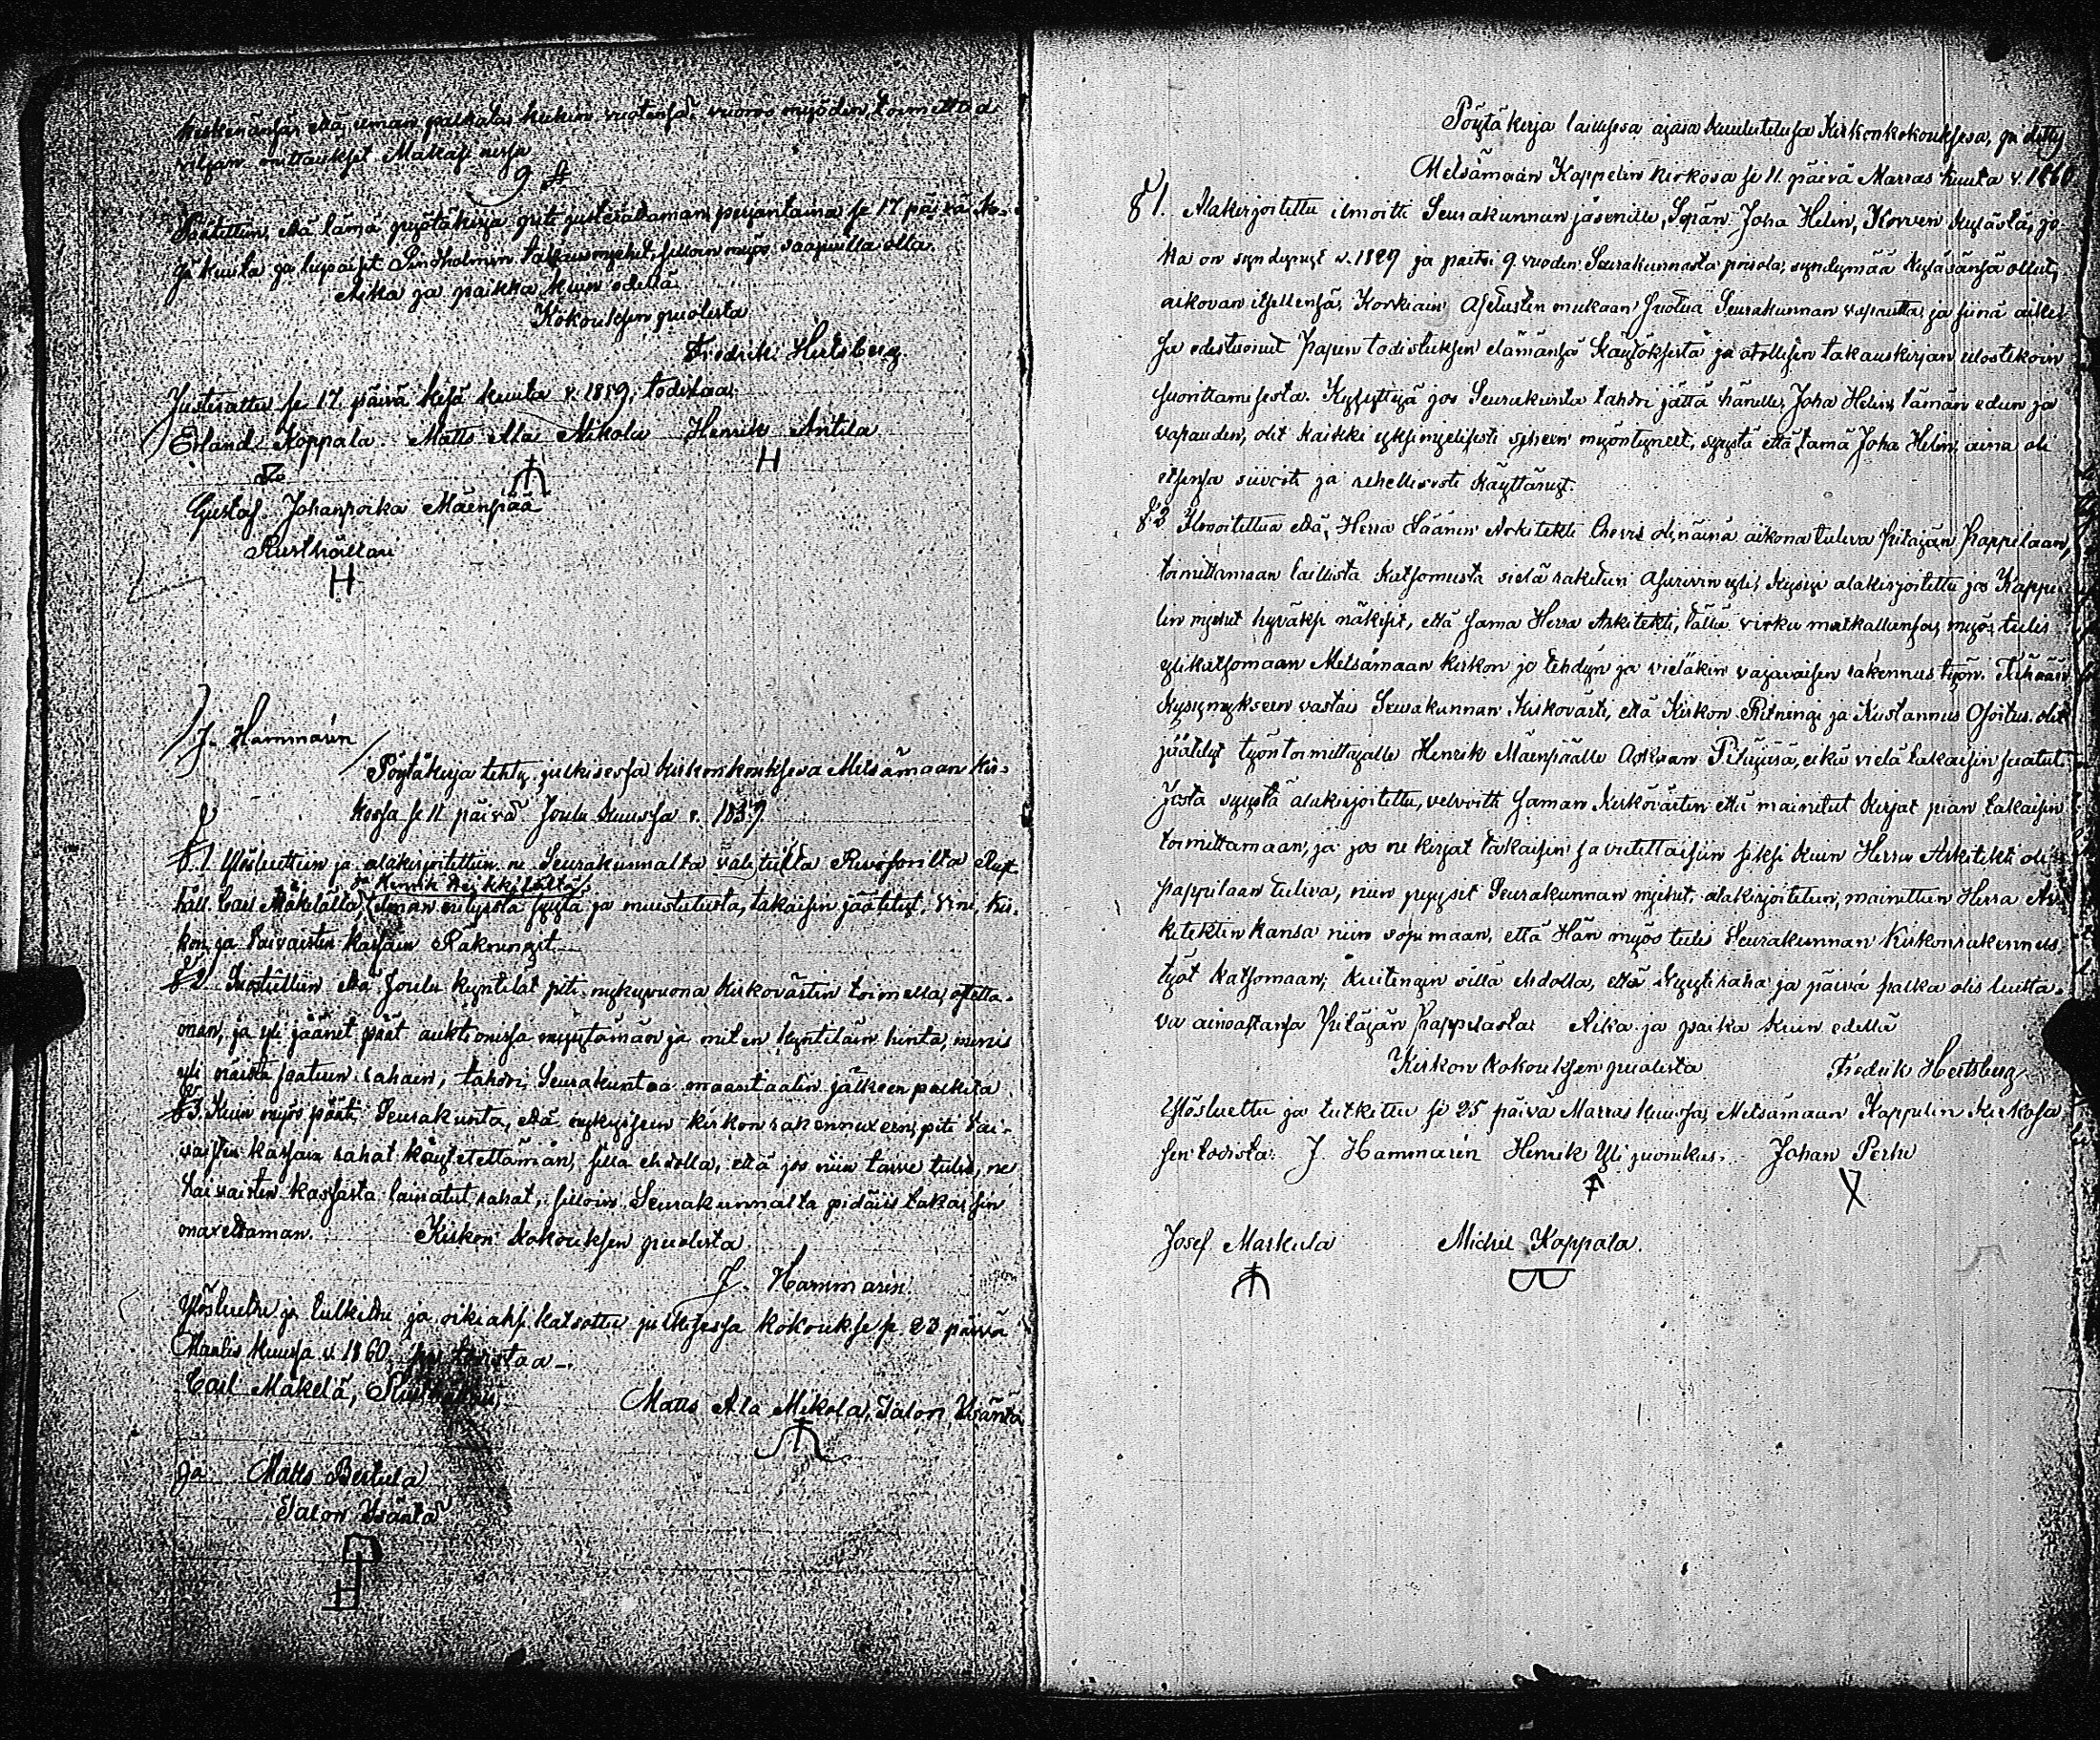 keskenänsä, että ilman palkata kukin vuotensa vuoroo myöden toimittaa
viljan mittaukset Makasinissa
9 §
Päätettiin, että tämä pyötäkirja piti justerattaman perjantaina se 17 päivä Ke-
sä kuuta ja lupaisit Lindholmin takausmiehet, silloin myös saapuilla olla.
Aika ja paikka kuin edellä
Kokouksen puolesta
Fredrik Hertsberg
Justerattu se 17. päivä Kesä kuuta v. 1859, todistaa:
Erland Koppala Matts Ala Mikola Henrik Antila
Gustaf Johanpoika Mäenpää
Rusthållari
H
J. Hammarén
Pöytäkirja tehty julkisessa kirkonkouksesa Metsämaan Kir-
kossa se 11 päivä Joulu kuussa v. 1859.
§ 1. Ylösluettiin ja alakirjoitettiin ne Seurakunnalta valitulta Revisorilta Rust
ja Henrik Heikkilältä,
håll. Carl Mäkelältä, ilman erityistä syytä ja muistutusta, takaisin jäätetyt, Vini, Kir-
kon, ja Vaivaisten kassain Räkningit
§ 2 Suostuttiin että Joulu kyntilät piti nykyvuona Kirkovärtin toimella, ostetta-
man, ja yli jäänet päät auktionissa myytämän ja miten kyntiläin hinta, menis
yli näistä saatuun rahain, tahdoi Seurakuntaa maantaalin jälkeen palkita
§ 3. Kuin myös päätti Seurakunta, että nykyiseen kirkon rakennuxeen, piti Vai-
vaisten kassain rahat käytetettämän, sillä ehdolla, että jos niin tarve tulis, ne
Vaivaisten kassasta lainatut rahat, silloin Seurakunnalta pidäis takaisin
maxettaman. Kirkon Kokouksen puolesta
J. Hammarén.
Ylösluettu ja tutkittu ja oikiaksi katsottu julkisessa kokoukse se 23 päivä
Maalis kuussa v. 1860,
Carl Mäkelä, Matts Ala Mikola, Talon Isäntä
ja Matts Bertula
Talon Isäntä
Pöytäkirja laillisesa ajasa kuulutetusa Kirkonkokouksesa, pidetty
Metsämaan Kappelin kirkosa se 11. päivä Marras kuuta v. 1860
§ 1. Alakirjoitettu ilmoitti Seurakunnan jäsenille, Sepän Joha Helin, Korven kylästä, jo
ka on syndynyt v. 1829 ja paitsi 9 vuoden Seurakunnasta poisola, syndymää kyläsänsä ollut,
aikovan itsellensä, Korkiain Asetusten mukaan suotua Seurakunnan vapautta, ja siinä aikei
sa edestuonut Papin todistuksen elämänsä käytöksestä ja atellisen takauskirjan ulostekoin
suorittamisesta. Kysyttyä jos Seurakunta tahdoi jättä hänelle, Joha Helin, tämän edun ja
vapauden, olit kaikki yksimielisesti siheen myöntyneet, syystä että tämä Joha Helin, aina oli
itsensä siivosti ja rehellisesti käyttänyt.
§ 2 Ilmoitettua että, Herra Läänin Arkitekti Chevris oli näinä aikona tuleva Pitäjän Pappilaan,
toimittamaan laillista katsomusta sielä raketuin Asuinrin yli, kysyi alakirjoitettu jos Kappe-
lin miehet hyväksi näkisit, että sama Herra Arkitekti, tällä virka matkallansa, myös tulis
ylikatsomaan Metsämaan kirkon jo tehdyn ja vieläkin vajavaisen rakennus työn. Tähään
kysymykseen vastais Seurakunnan Kirkovärti, että Kirkon Ritningi ja Kustannus Osoitus olit
jäätetyt työn toimittajalle Henrik Mäenpäälle Askosen Pitäjäsä, eikä vielä takaisin saatut.
Josta syystä alakirjoitettu, velvoitti saman kirkovärtin että mainitut kirjat pian takaisin
toimittamaan, ja jos ne kirjat takaisin saavutettaisiin siksi kuin Herra Arkitekti olis
pappilaan tuleva, niin pyysit Seurakunnan miehet, alakirjoitetun, mainittun Herra Ar-
kitektin kansa niin sopimaan, että Hän myös tulis Seurakunnan Kirkonrakennus
työt katsomaan; kuitengin sillä ehdolla, että kyytiraha ja päivä palka olis luetta-
va ainoastansa Pitäjän Pappilasta. Aika ja paika kuin edellä
Kirkon Kokouksen puolesta Fredrik Hertsberg
Ylösluettu ja tutkittu se 25 päivä Marras kuussa, Metsämaan Kappelin Kirkosa
sen todista: J. Hammarén Henrik Yli juonikus, Johan Perho
Josef Markula Michel Koppala.